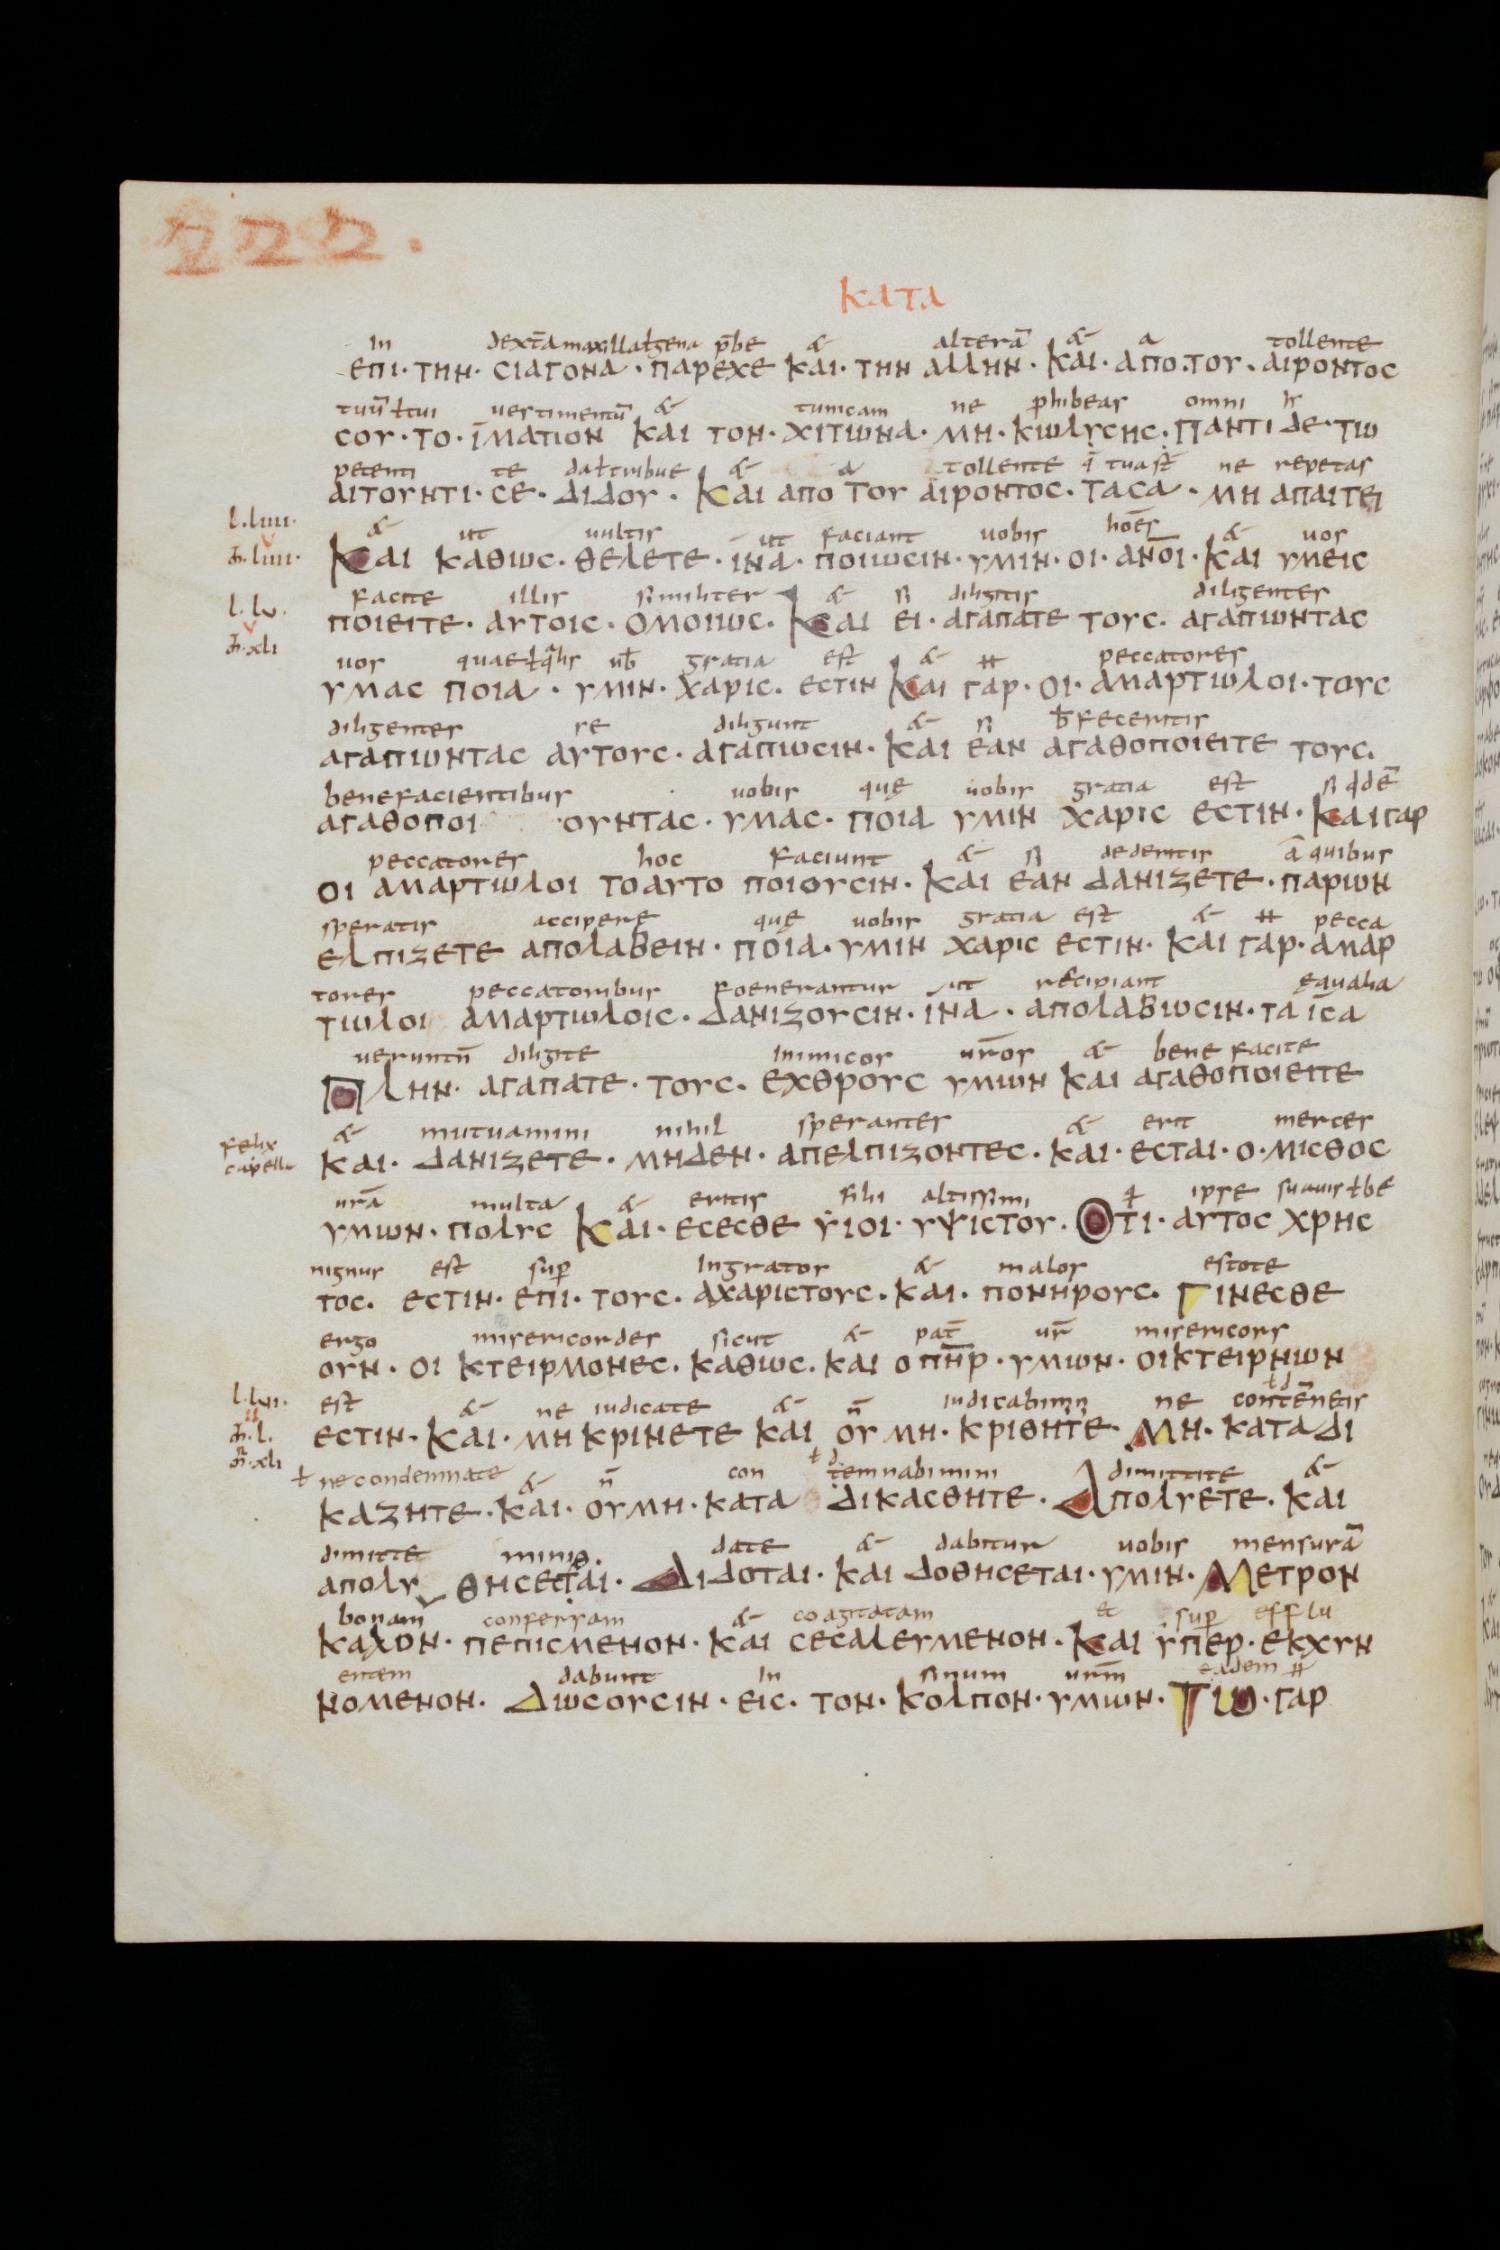 222.
κατα
in dextā maxillā ł gena p̄be & alterā & a tollente
επι· την· ϲιαγονα· παρεχε και· την αλλην· και· απο·του· αιροντοϲ
tuū ł tui vestimentū & tunicam ne phibeas omni
ϲου·το·ϊματιον και τον·χιτωνα· μη·κωλυϲηϲ·παντι δε·τω
petenti te da ł tribue & a tollente q̄ tua sт̄ ne repetas
αιτουντι·ϲε·διδου· και απο του αιροντοϲ·ταϲα·μη απαιτει
l.liiii·
& ut uultis ut faciant uobis hoēs & uos
m̄.liiii·
και καθωϲ·θελετε·ινα·ποιωϲιν·υμιν·οι·ανοι·και υμειϲ
l.lv.
facite illis similiter & si diligitis diligentes
ποιειτε·αυτοιϲ·ομοιωϲ· και ει·αγαπατε τουϲ·αγαπωνταϲ
m̄.xli
uos quae ł q̄lis ub̄ gratia est & # peccatores
υμαϲ ποια·υμιν·χαριϲ· εϲτιν και γαρ·οι·αμαρτωλοι·τουϲ
diligentes se diligunt & si b̄fecentis
αγαπωνταϲ αυτουϲ·αγαπωϲιν·και εαν αγαθοποιειτε τουϲ·
benefacientibus uobis quę uobis gratia est si q̄dē
αγαθοποι ουνταϲ·υμαϲ·ποια υμιν χαριϲ εϲτιν·και γαρ
peccatores hoc faciunt & si dederitis a quibus
οι αμαρτωλοι τοαυτο ποιουϲιν·και εαν δανιζετε·παρων
speratis accipere quę uobis gratia est & # pecca
ελπιζετε απολαβειν·ποια·υμιν χαριϲ εϲτιν·και γαρ·αμαρ
tores peccatoribus foenerantur ut recipiant ęqualia
τωλοι αμαρτωλοιϲ·δανιζουϲιν·ινα·απολαβωϲιν·τα ιϲα
uerumtn̄ diligite inimicos ur̄os & bene facite
πλην·αγαπατε·τουϲ·εχθρουϲ υμων και αγαθοποιειτε
felix
& mutuamini nihil sperantes & erit merces
capella
και·δανιζετε·μηδεν·απελπιζοντεϲ·και·εϲται·ο·μιϲθοϲ
urā multa & eritis filii altissimi q ipse suauis ł be
υμων·πολυϲ και·εϲεϲθε υιοι·υψιϲτου·οτι·αυτοϲ χρηϲ
nignus est sup̄ ingratos & malos estote
τοϲ· εϲτιν·επι·τουϲ·αχαριϲτουϲ·και·πονηρουϲ· γινεϲθε
ergo misericordes sicut & pat̄ ur̄ misericors
ουν·οι κτειρμονεϲ·καθωϲ·και ο πηρ·υμων·οικτειρηων
l.lvi.
est & ne iudicate & n̄ iudicabimini ne contēnetis
m̄.l.
εϲτιν·και·μη κρινετε και ου μη·κριθητε·μη·καταδι
m̄.xli
ł ne condemnate & n̄ con temnabimini dimittite &
καζητε·και·ουμη·κατα δικαϲθητε·απολυετε·και
dimitte mini date & dabitur uobis mensurā
απολυ θηϲεϲται·διδοται·και δοθηϲεται·υμιν·μετρον
bonam confersam & coagitatam et sup̄ efflu
καλον·πεπιϲμενον·και ϲεϲαλευμενον·και υπερ·εκχυν
entem dabunt in sinum urm̄ eadem #
νομενον·δωϲουϲιν·ειϲ·τον·κολπον·υμων·τω·γαρ